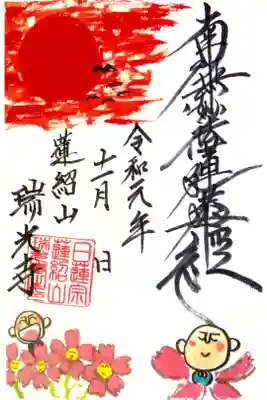 南無妙法蓮華経
令和元年
十一月 日
蓮紹山
瑞光寺
日蓮宗
蓮紹山
瑞光寺